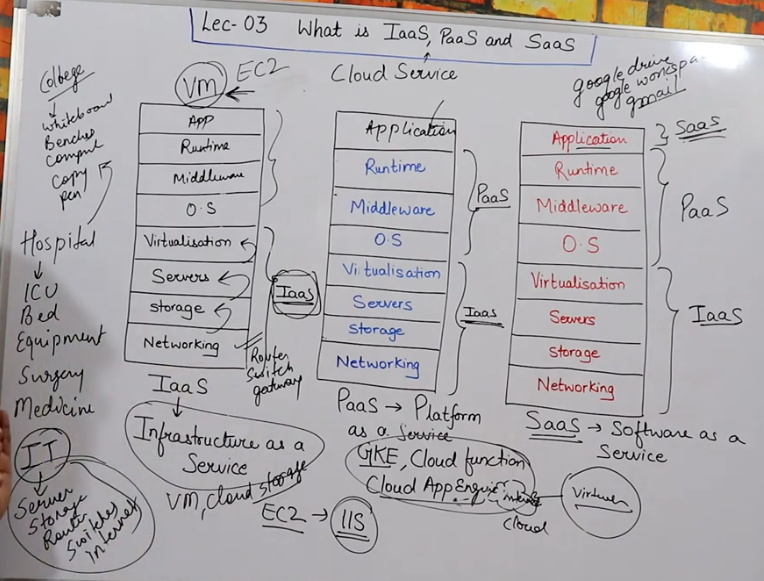 Lec-03 What is IaaS, PaaS and SaaS
Cloud Service
College
Whiteboard
Benches
Comput
Copy
pen
Hospital
ICU
Bed
Equipment
Surgery
Medicine
IT
Server
Storage
Router
Switches
Internet
VM
EC2
APP
Runtime
Middleware
O.S
Virtualisation
Servers
Storage
Networking
IaaS
Router
Switch
gateway
IaaS
Infrastructure as a
Service
VM, cloud storage
EC2 → IIS
Application
Runtime
Middleware
O.S
Virtualisation
Servers
Storage
Networking
PaaS
IaaS
PaaS → Platform
as a Service
GKE, Cloud function
Cloud App Engine
Cloud
google drive
google workspa
gmail
Application
Runtime
Middleware
O.S
Virtualisation
Servers
Storage
Networking
SaaS
PaaS
IaaS
SaaS → Software as a
Service